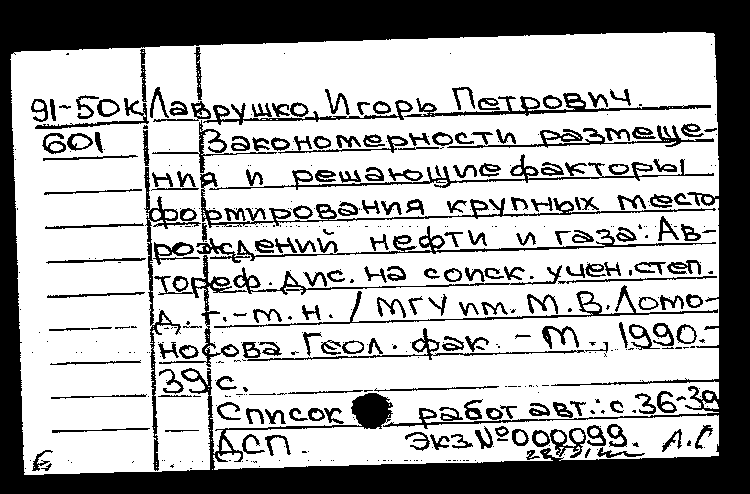 91-50к Лаврушко, Игорь Петрович.
601 Закономерности размеще-
ния и решающие факторы
формирования крупных место-
рождений нефти и газа: Ав-
тореф. дис. на соиск. учен. степ.
д. г.-м. н. / МГУ им. М.В. Ломо-
носова. Геол. фак. - М., 1990.-
39 с.
Список работ авт.: с. 36-39
ДСП. Экз. № 000099. А.С.
Б